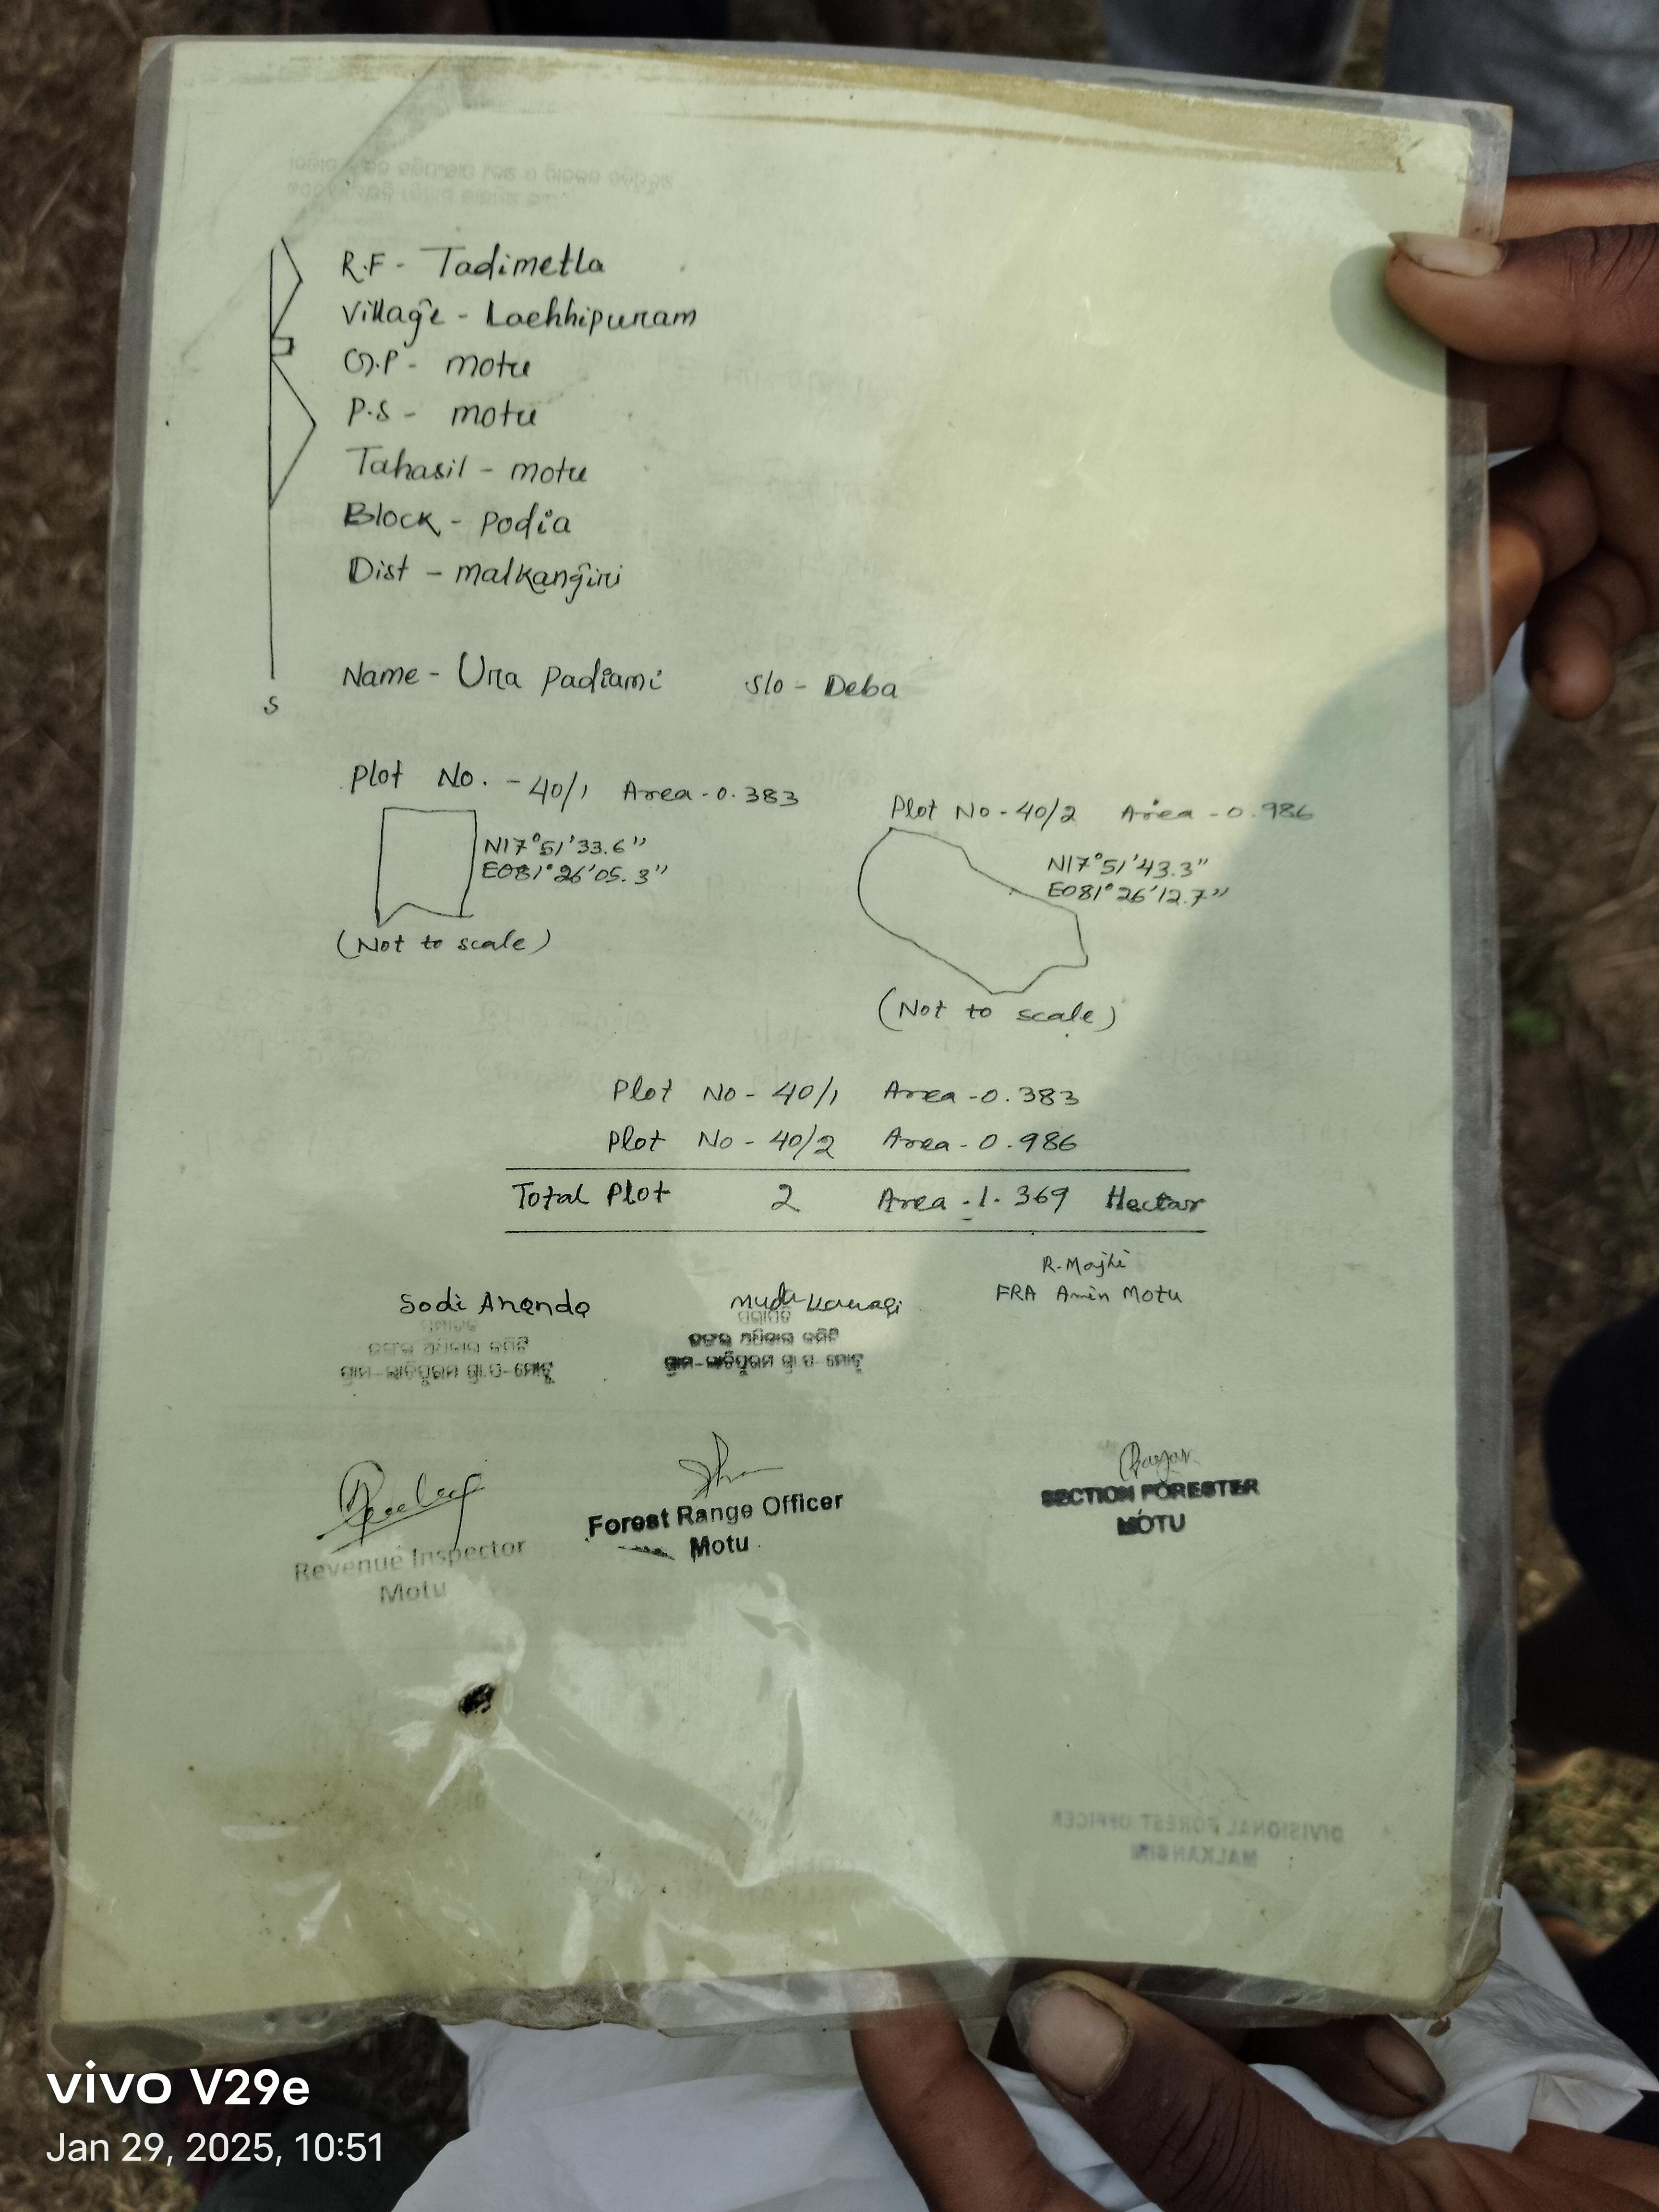 R.F - Tadimetla
Village - Lachhipuram
G.P - motu
P.S - motu
Tahasil - motu
Block - Podia
Dist - malkangiri
S
Name - Ura Padiami S/o - Deba
Plot No. - 40/1 Area - 0.383
N17°51'33.6"
E081°26'05.3"
(Not to scale)
Plot No - 40/2 Area - 0.986
N17°51'43.3"
E081°26'12.7"
(Not to scale)
Plot No - 40/1 Area - 0.383
Plot No - 40/2 Area - 0.986
Total Plot 2 Area - 1.369 Hectar
R. Majhi
FRA Amin Motu
Sodi Ananda
muda
Revenue Inspector
Motu
Forest Range Officer
Motu
SECTION FORESTER
MOTU
DIVISIONAL FOREST OFFICER
MALKANGIRI
vivo V29e
Jan 29, 2025, 10:51